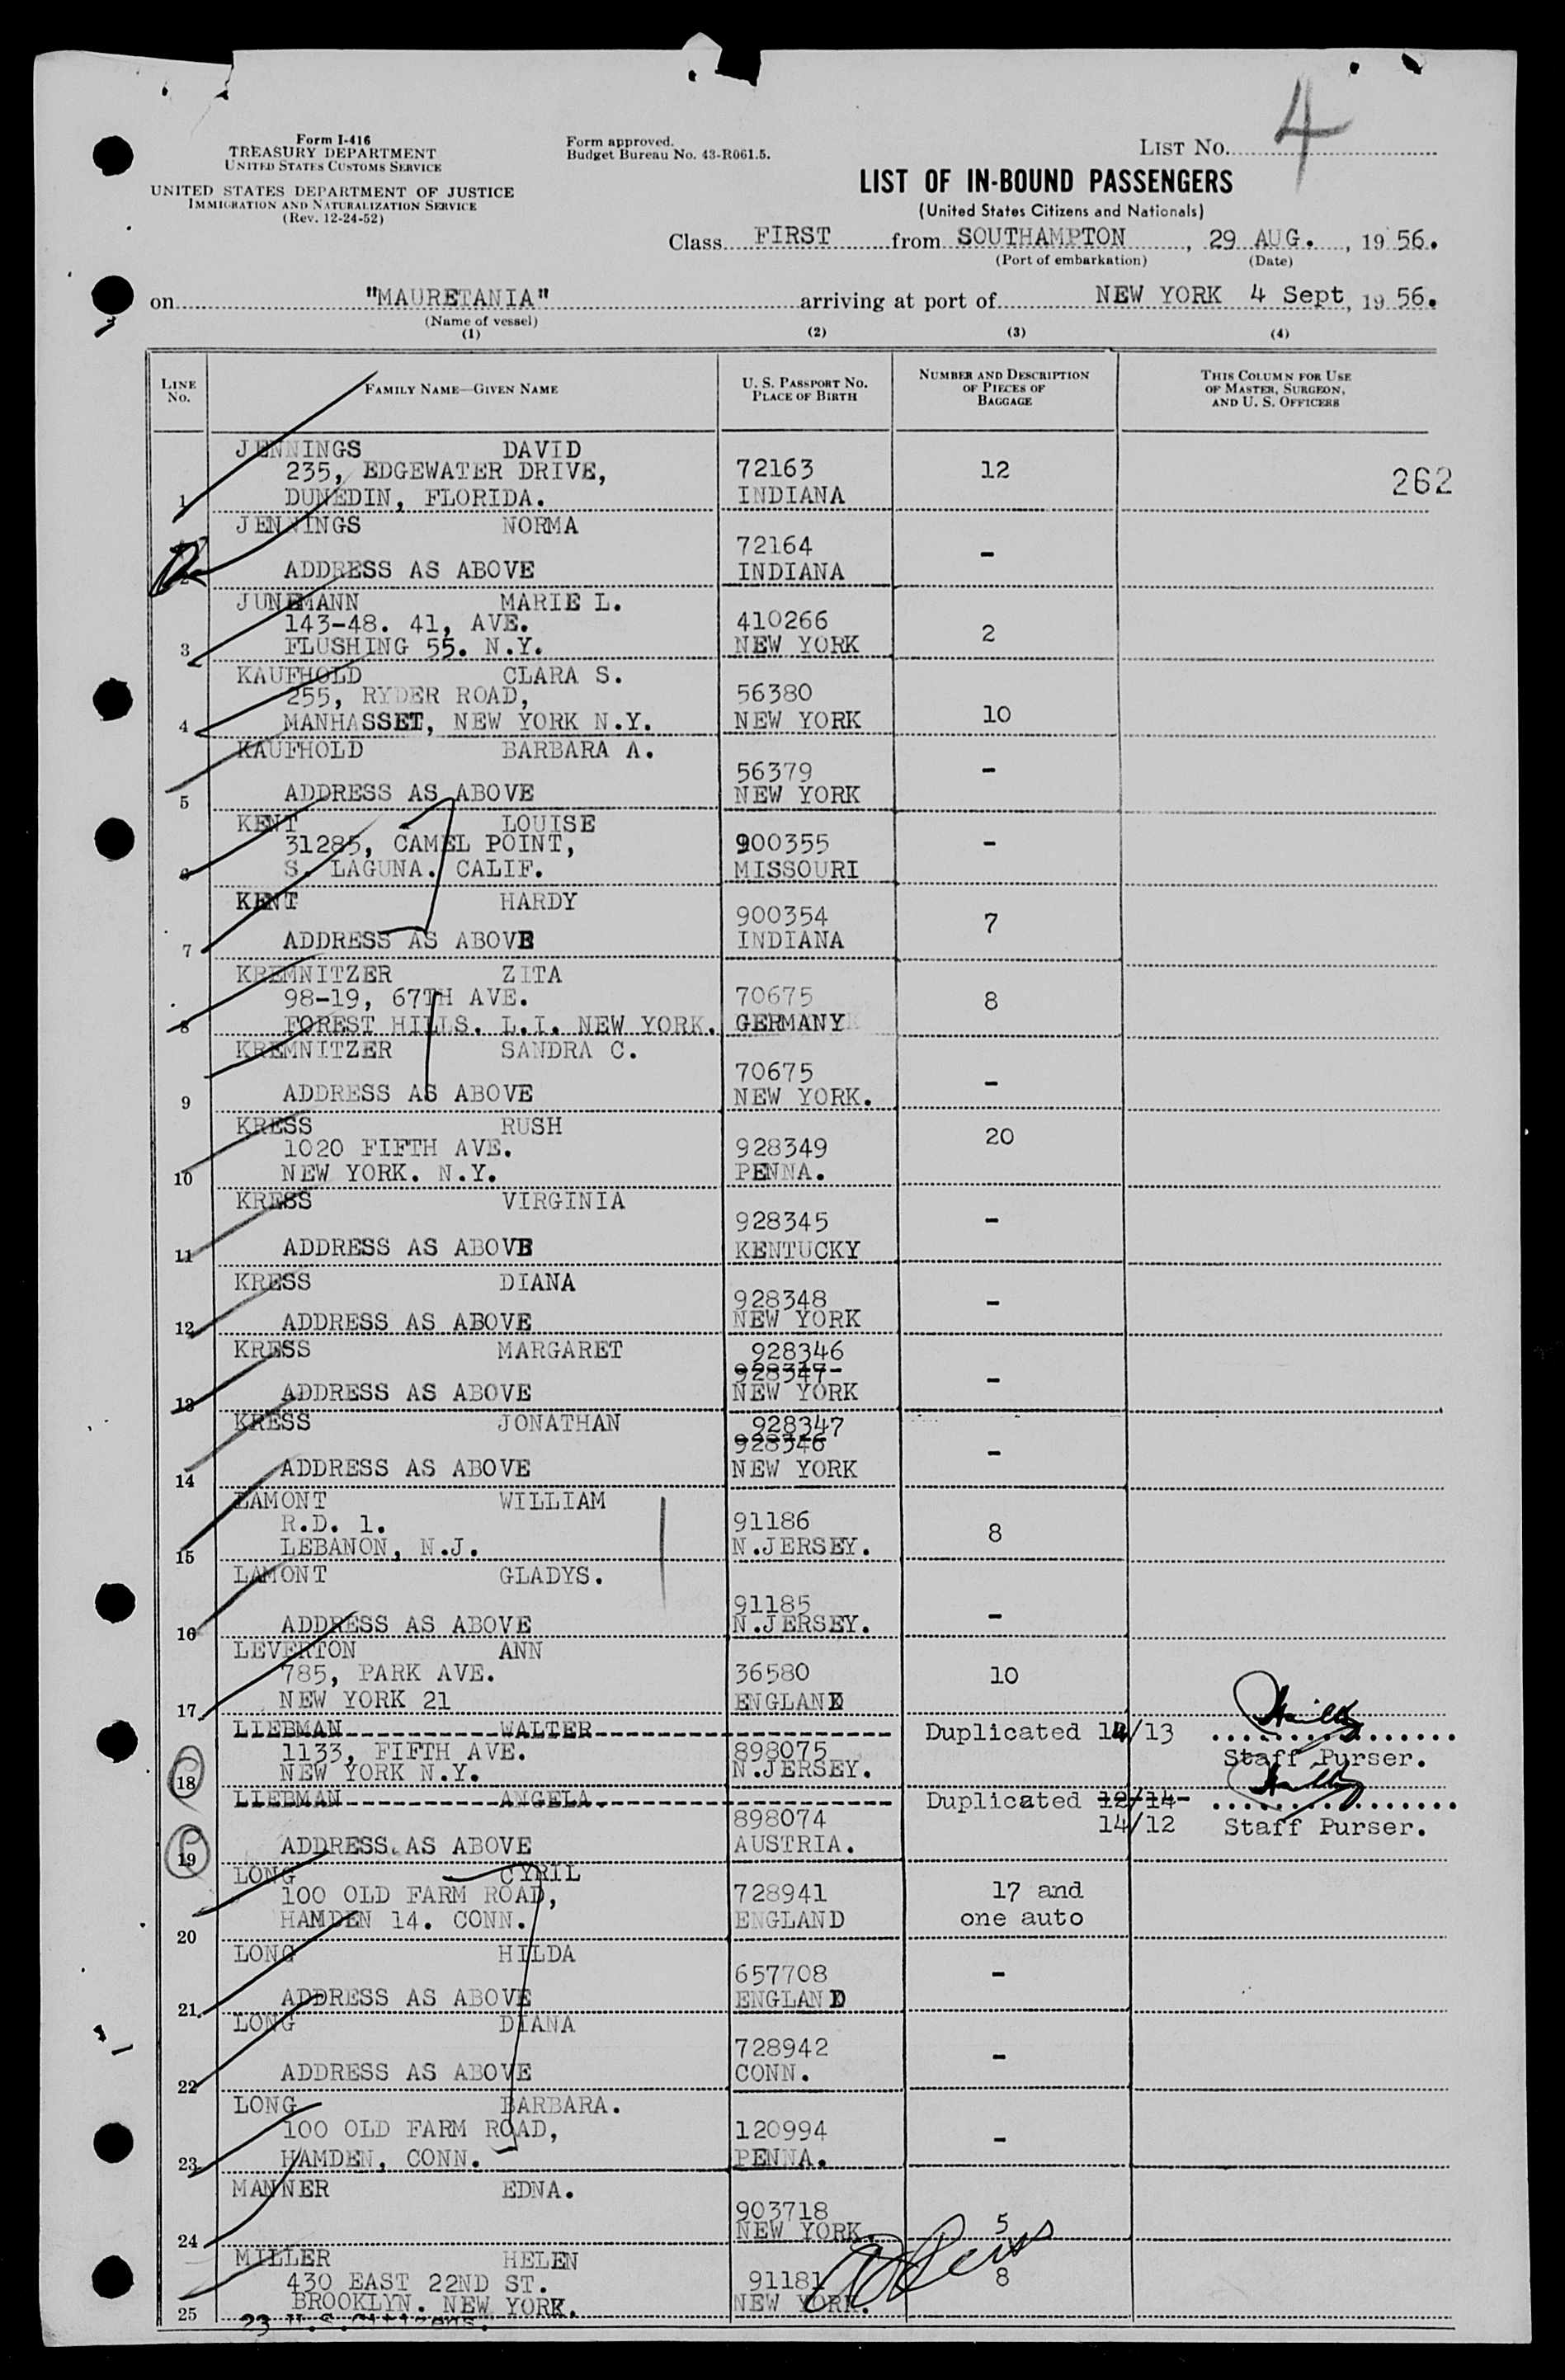 Form I-416
TREASURY DEPARTMENT
UNITED STATES CUSTOMS SERVICE
UNITED STATES DEPARTMENT OF JUSTICE
IMMIGRATION AND NATURALIZATION SERVICE
(Rev. 12-24-52)
Form approved.
Budget Bureau No. 43-R061.5.
LIST No. 4
LIST OF IN-BOUND PASSENGERS
(United States Citizens and Nationals)
Class FIRST from SOUTHAMPTON, 29 AUG., 1956.
(Port of embarkation) (Date)
on "MAURETANIA" arriving at port of NEW YORK 4 Sept, 1956.
(Name of vessel)
(1) (2) (3) (4)
LINE No. FAMILY NAME—GIVEN NAME U. S. PASSPORT No. PLACE OF BIRTH NUMBER AND DESCRIPTION OF PIECES OF BAGGAGE THIS COLUMN FOR USE OF MASTER, SURGEON, AND U. S. OFFICERS
JENNINGS DAVID
235, EDGEWATER DRIVE, 72163 12 262
1 DUNEDIN, FLORIDA. INDIANA
JENNINGS NORMA
72164 -
2 ADDRESS AS ABOVE INDIANA
JUNEMANN MARIE L.
143-48. 41, AVE. 410266 2
3 FLUSHING 55. N.Y. NEW YORK
KAUFHOLD CLARA S.
255, RYDER ROAD, 56380
4 MANHASSET, NEW YORK N.Y. NEW YORK 10
KAUFHOLD BARBARA A.
56379 -
5 ADDRESS AS ABOVE NEW YORK
KENT LOUISE
31285, CAMEL POINT, 900355 -
6 S. LAGUNA. CALIF. MISSOURI
KENT HARDY
900354 7
7 ADDRESS AS ABOVE INDIANA
KREMNITZER ZITA
98-19, 67TH AVE. 70675 8
8 FOREST HILLS. L.I. NEW YORK. GERMANY
KREMNITZER SANDRA C.
70675 -
9 ADDRESS AS ABOVE NEW YORK.
KRESS RUSH 20
1020 FIFTH AVE. 928349
10 NEW YORK. N.Y. PENNA.
KRESS VIRGINIA
928345 -
11 ADDRESS AS ABOVE KENTUCKY
KRESS DIANA
928348 -
12 ADDRESS AS ABOVE NEW YORK
KRESS MARGARET 928346
928347 -
13 ADDRESS AS ABOVE NEW YORK
KRESS JONATHAN 928347
928346 -
14 ADDRESS AS ABOVE NEW YORK
LAMONT WILLIAM
R.D. 1. 91186 8
15 LEBANON, N.J. N.JERSEY.
LAMONT GLADYS.
91185 -
16 ADDRESS AS ABOVE N.JERSEY.
LEVERTON ANN
785, PARK AVE. 36580 10
17 NEW YORK 21 ENGLAND
LIEBMAN WALTER Duplicated 14/13
1133, FIFTH AVE. 898075 Staff Purser.
18 NEW YORK N.Y. N.JERSEY.
LIEBMAN ANGELA. Duplicated 12/14
898074 14/12 Staff Purser.
19 ADDRESS AS ABOVE AUSTRIA.
LONG CYRIL
100 OLD FARM ROAD, 728941 17 and
20 HAMDEN 14. CONN. ENGLAND one auto
LONG HILDA
657708 -
21 ADDRESS AS ABOVE ENGLAND
LONG DIANA
728942 -
22 ADDRESS AS ABOVE CONN.
LONG BARBARA.
100 OLD FARM ROAD, 120994 -
23 HAMDEN, CONN. PENNA.
MANNER EDNA.
903718 5
24 NEW YORK.
MILLER HELEN
430 EAST 22ND ST. 91181 8
25 BROOKLYN. NEW YORK. NEW YORK.
23 U.S. Citizens.